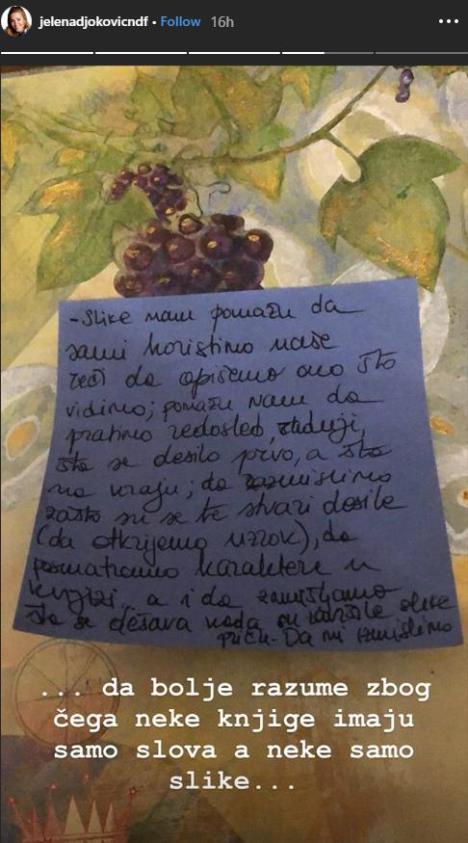 jelenadjokovicndf • Follow 16h
-Slike nam pomažu da
sami koristimo naše
reči da opišemo ono što
vidimo; pomažu nam da
pratimo redosled,
šta se desilo prvo, a šta
na kraju; da razmislimo
zašto su se te stvari desile
(da otkrijemo uzrok), da
posmatramo karaktere u
knjizi, a i da zamišljamo
šta se dešava kada su završile slike
priču - Da mi izmislimo
... da bolje razume zbog
čega neke knjige imaju
samo slova a neke samo
slike...